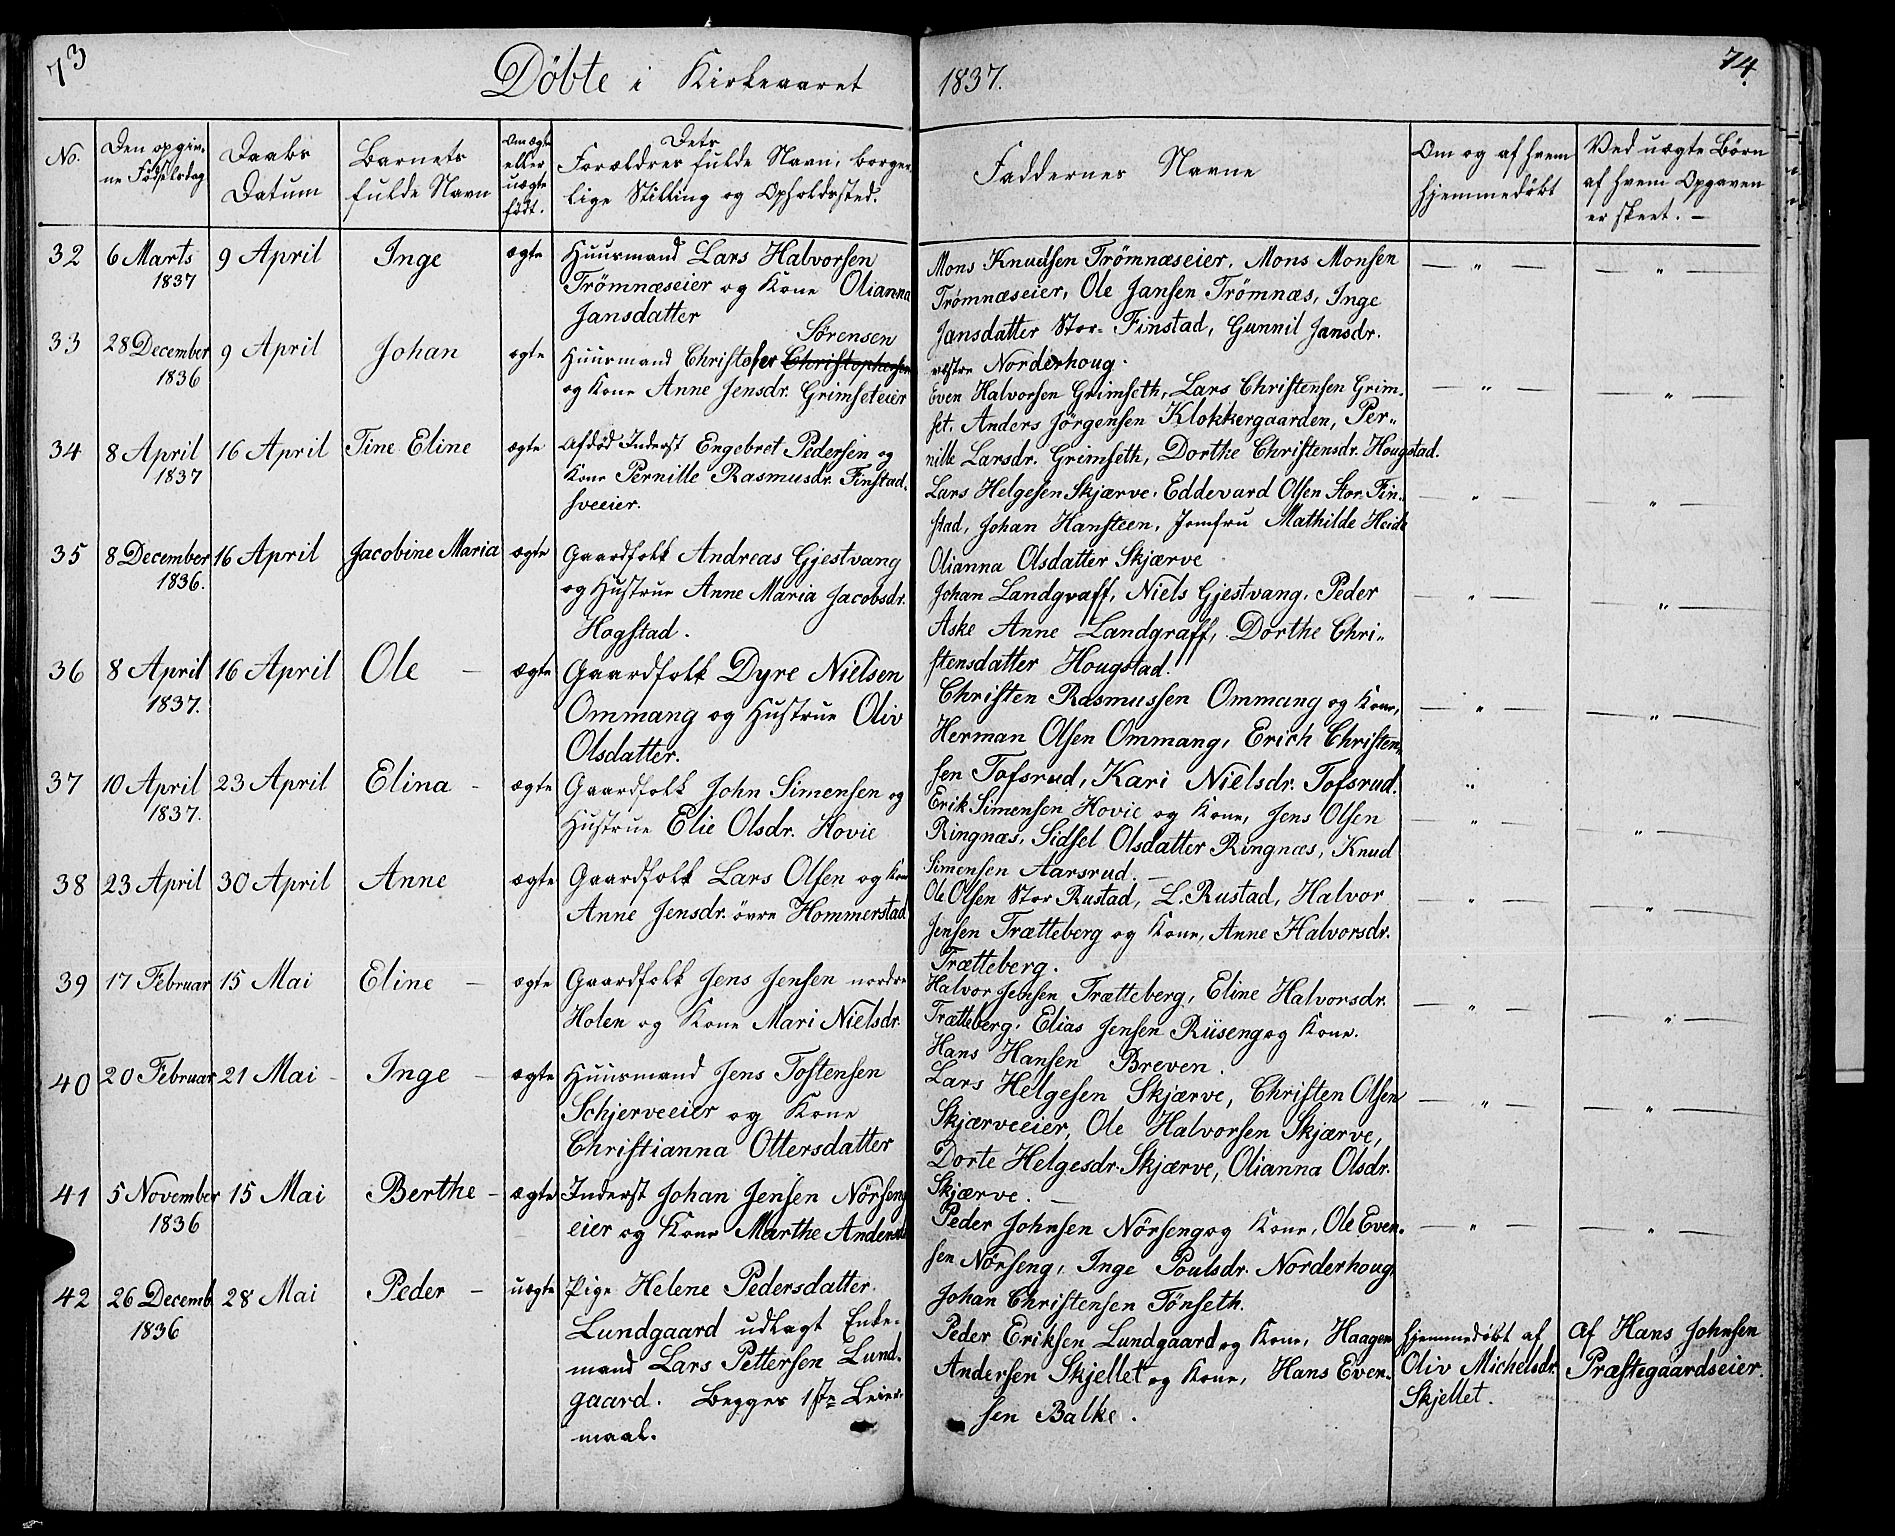 73
Döbte i Kirkeaaret
No.
Den opgiv-
ne Födselsdag
Daabs
Datum
Barnets
fulde Navn
Om ægte
eller
uægte
født.
Dets
Forældres fulde Navn, borger-
lige Stilling og Opholdssted.
32
6 Marts
1837
9 April
Inge
ægte
Huusmand Lars Halvorsen
Trömnæseier og Kone Olianna
Jansdatter
33
28 December
1836
9 April
Johan
ægte
Sörensen
Huusmand Christofer Christophersen
og Kone Anne Jensdr. Grimseteier
34
8 April
1837
16 April
Tine Eline
ægte
Afdöd Inderst Engebret Pedersen og
Kone Pernille Rasmusdr. Finstad-
sveeier.
35
8 December
1836.
16 April
Jacobine Maria
ægte
Gaardfolk Andreas Gjestvang
og Hustrue Anne Maria Jacobsdr.
Hogstad.
36
8 April
1837.
16 April
Ole —
ægte
Gaardfolk Dyre Nielsen
Ommang og Hustrue Oliv
Olsdatter.
37
10 April
1837.
23 April
Elina -
ægte
Gaardfolk John Simensen og
Hustrue Elie Olsdr. Hovie
38
23 April
30 April
Anne
ægte
Gaardfolk Lars Olsen og Kone
Anne Jensdr. övre Hommerstad
39
17 Februar
15 Mai
Eline —
ægte
Gaardfolk Jens Jensen nordre
Holen og Kone Mari Nielsdr.
40
20 Februar
21 Mai -
Inge —
ægte
Huusmand Jens Tostensen
Schjerveeier og Kone
Christianna Ottersdatter
41
5 November
1836
15 Mai
Berthe -
ægte
Inderst Johan Jensen Nörseng
eier og Kone Marthe Andersdr
42
26 Decemb.
1836
28 Mai
Peder -
uægte
Pige Helene Pedersdatter
Lundgaard udlagt Enke-
mand Lars Pettersen Lund-
gaard. Begges 1ste Leier-
maal.
1837.
74
Faddernes Navne
Om og af hvem
hjemmedöbt
Ved uægte Börn
af hvem Opgaven
er skeet. —
Mons Knudsen Trömnæseier, Mons Monsen
Trömnæseier, Ole Jansen Trömnæs, Inge
Jansdatter Stor-Finstad, Gunnil Jansdr.
vestre Norderhoug.
— " —
— " —
Even Halvorsen Grimseth, Lars Christensen Grim-
set, Anders Jörgensen Klokkergaarden, Per-
nille Larsdr. Grimseth, Dorthe Christensdr. Hougstad.
— " —
" —
Lars Helgesen Skjærve, Eddevard Olsen Stor-Fin-
stad, Johan Hansteen, Jomfru Mathilde Heide
Olianna Olsdatter Skjærve
— " —
" —
Johan Landgraff, Niels Gjestvang, Peder
Aske Anne Landgraff, Dorthe Chri-
stensdatter Hougstad.
— " —
— " —
Christen Rasmussen Ommang og Kone,
Herman Olsen Ommang, Erich Christen-
sen Tofsrud, Kari Nielsdr. Tofsrud.
— " —
— " —
Erik Simensen Hovie og Kone, Jens Olsen
Ringnæs, Sidsel Olsdatter Ringnæs, Knud
Simensen Aarsrud. —
— " —
— " —
Ole Olsen Stor Rustad, L. Rustad, Halvor
Jensen Trætteberg og Kone, Anne Halvorsdr.
Trætteberg.
— " —
— " —
Halvor Jensen Trætteberg, Eline Halvorsdr.
Trætteberg, Elias Jensen Riiseng og Kone.
Hans Hansen Breven.
— " —
— " —
Lars Helgesen Skjærve, Christen Olsen
Skjærveeier, Ole Halvorsen Skjærve,
Dorte Helgesdr. Skjærve, Olianna Olsdr.
Skjærve. —
— " —
— " —
Peder Johnsen Nörseng og Kone, Ole Even-
sen Nörseng, Inge Poulsdr. Norderhoug,
Johan Christensen Tönseth.
— " —
— " —
Peder Eriksen Lundgaard og Kone, Haagen
Andersen Skjellet og Kone, Hans Even-
sen Balke.
Hjemmedöbt af
Oliv Michelsdr.
Skjellet.
Af Hans Johnsen
Præstegaardseier.